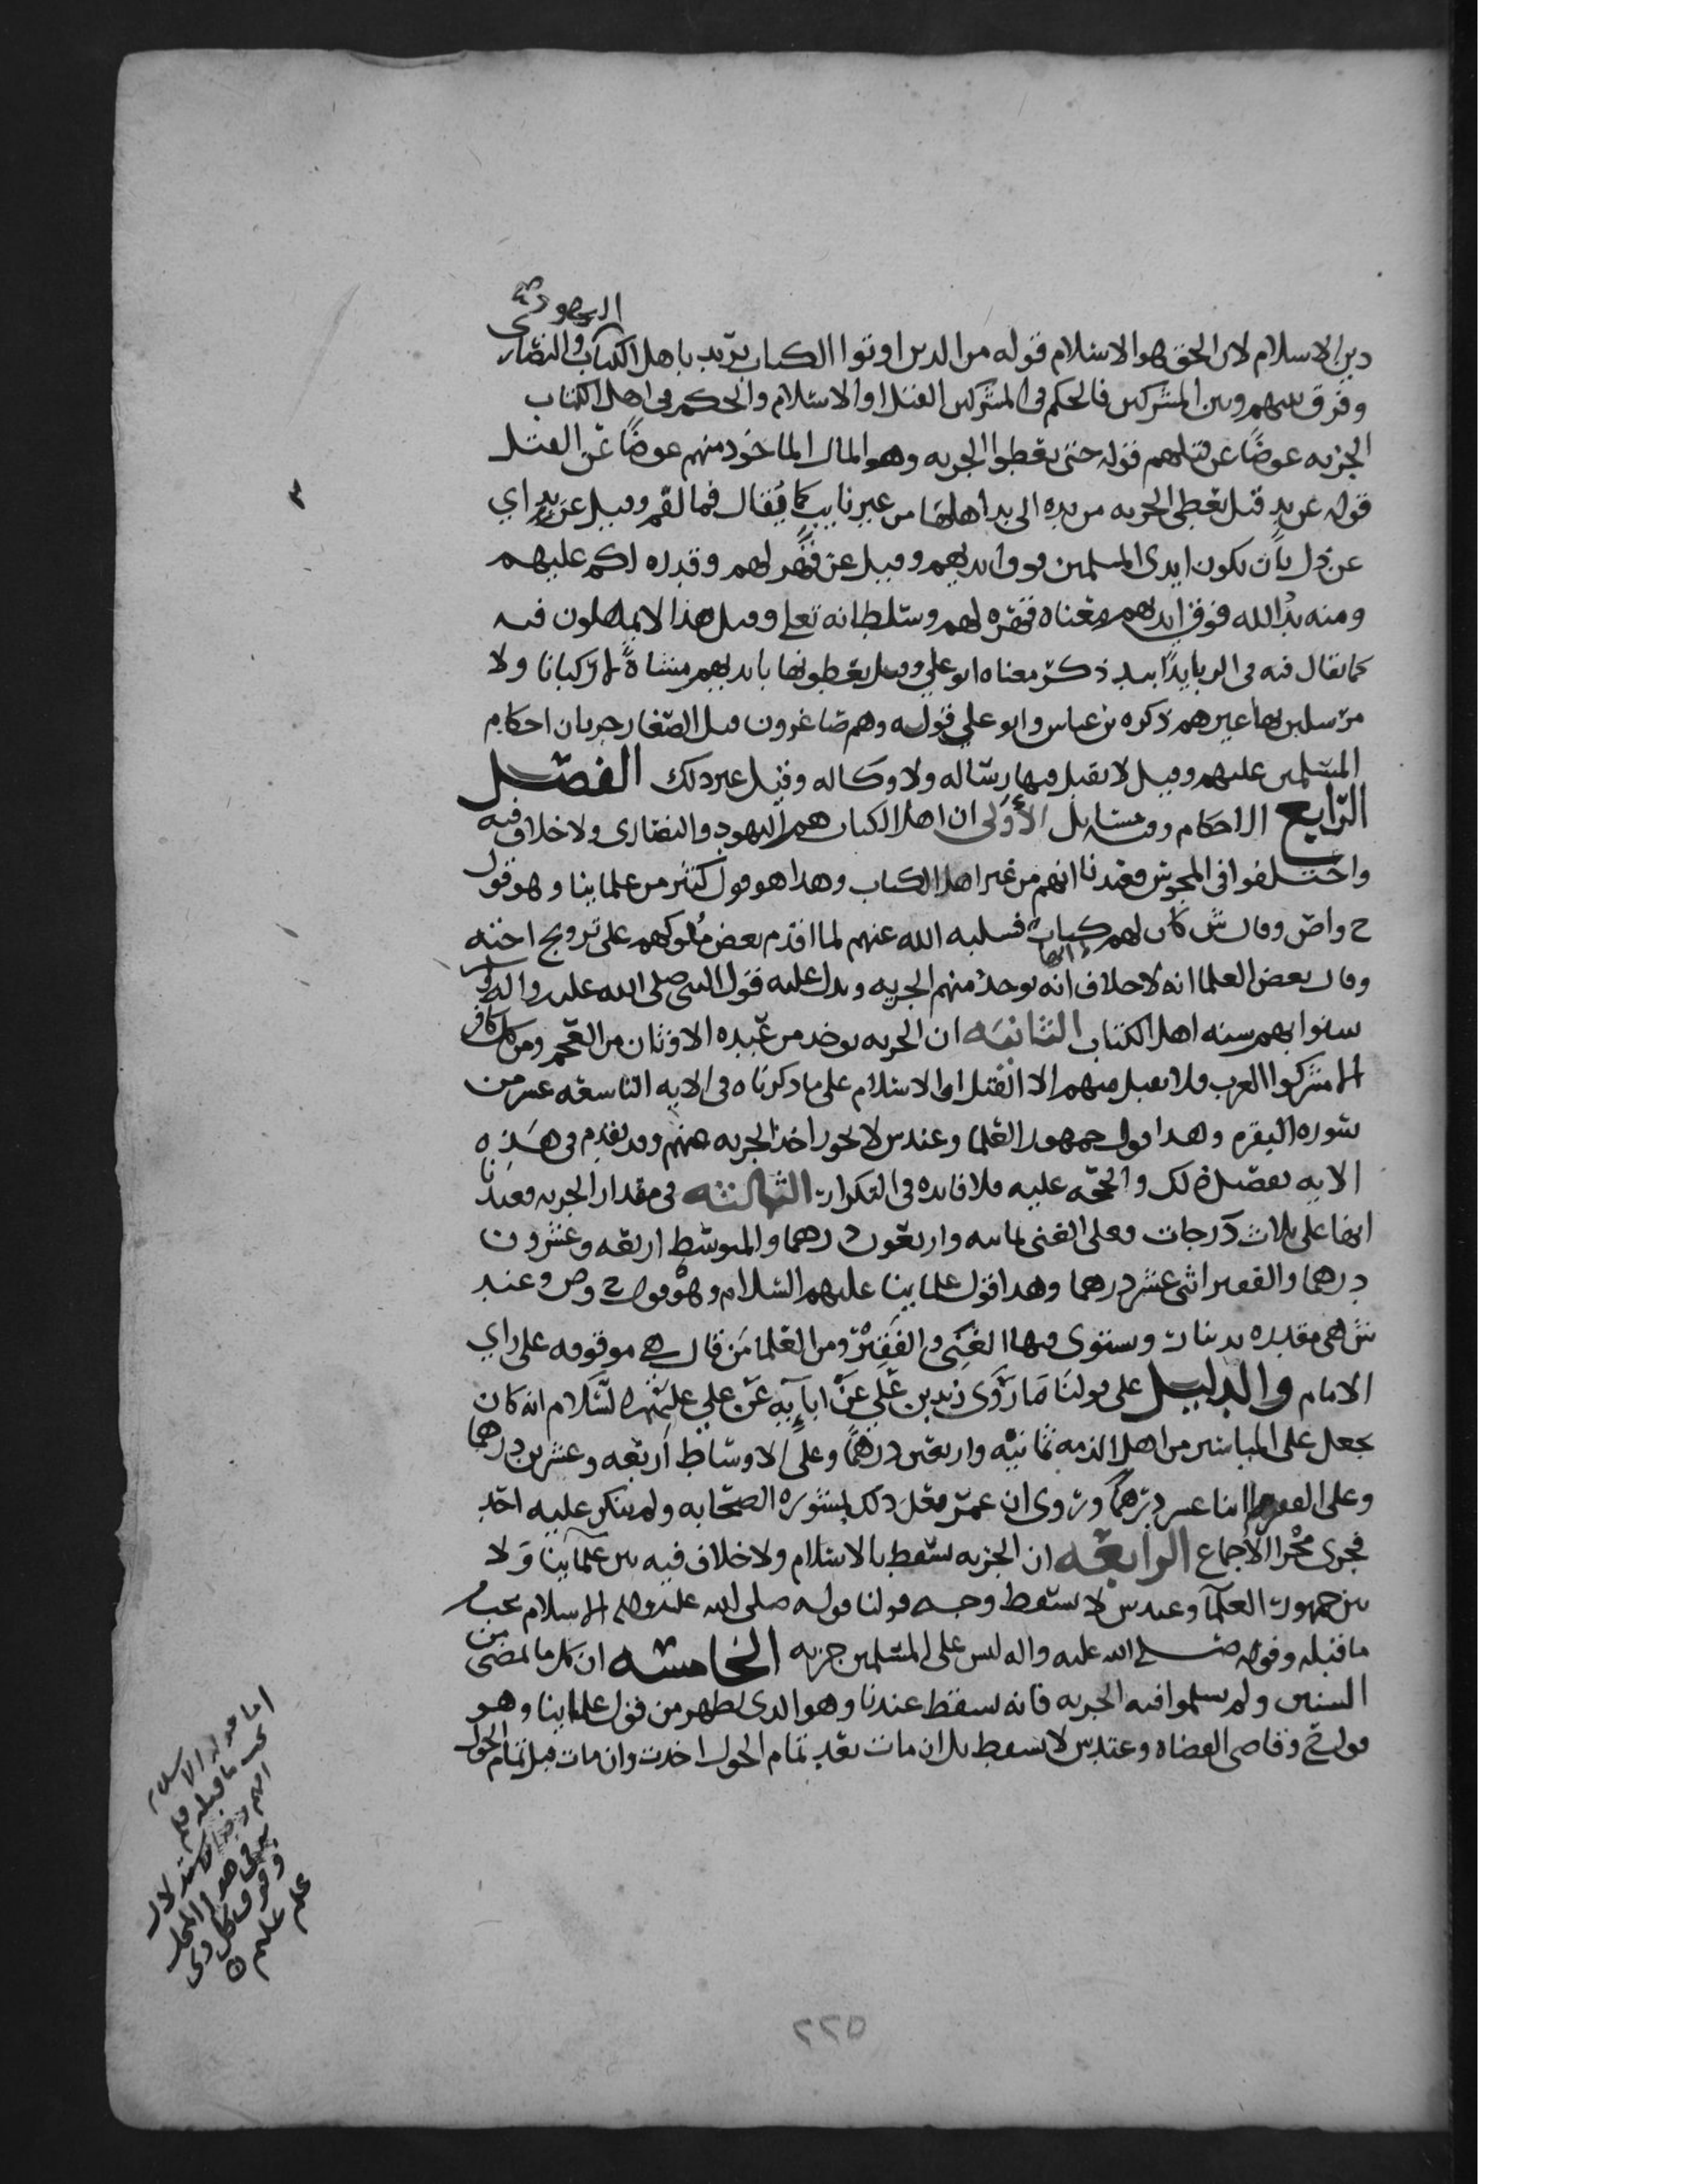 اليهود
دين الاسلام لان الحق هو الاسلام قوله من الذين اوتوا الكتاب يريد باهل الكتاب والنصارى
وفرق بينهم وبين المشركين فالحكم في المشركين القتل او الاسلام والحكم في اهل الكتاب
الجزيه عوضًا عن قتلهم قوله حتى يعطوا الجزيه وهو المال الماخوذ منهم عوضًا عن القتل
قوله عن يد قيل يعطي الجزيه من يده الى يد اهلها من غير نايب كما يُقال فما لفم وقيل عن يد اي
عن ذل بان يكون ايدي المسلمين فوق ايديهم وقيل عن قهر لهم وقدره لكم عليهم
ومنه يدُ الله فوق ايديهم معناه قهره لهم وسلطانه تعلى وقيل هذا لا يمهلون فيه
كما يقال فيه في الربا يدًا بيد ذكر معناه ابو علي وقيل يعطونها بايديهم مشاةً لا ركبانا ولا
مرسلين بها غيرهم ذكره بن عباس وابو علي قوله وهم صاغرون قيل الصغار جريان احكام
المسلمين عليهم وقيل لا يقبل فيها رساله ولا وكاله وقيل غير ذلك الفصل
الرابع الاحكام وفيه مسايل الأولى ان اهل الكتاب هم اليهود والنصارى ولا خلاف فيه
واختلفوا في المجوس فعندنا انهم من غير اهل الكتاب وهذا هو قول كثير من علماينا وهو قول
ح واص وقال ش كان لهم كتاب فسلبه الله عنهم لما اقدم بعض ملوكهم على تزويج اخته
وقال بعض العلما انه لا خلاف انه يوخذ منهم الجزيه ويدل عليه قول النبي صلى الله عليه واله
سنوا بهم سنه اهل الكتاب الثانيه ان الجزيه يوخذ من عبده الاوثان من العجم ومن كل كافر
الا مشركوا العرب فلا يقبل منهم الا القتل او الاسلام على ما ذكرناه في الايه التاسعه عشر من
سوره البقره وهذا قول جمهور العلما وعند س لا يجوز اخذ الجزيه منهم وقد تقدم في هذه
الايه تفصيل ذلك والحجه عليه فلا فايده في التكرار الثالثه في مقدار الجزيه فعندنا
انها على ثلاث درجات فعلى الغني ثمانيه واربعون درهما والمتوسط اربعه وعشرون
درهما والفقير اثنى عشر درهما وهذا قول علماينا عليهم السلام وهو قول ح وص وعند
ش هي مقدره بدينار ويستوي فيها الغني والفقير ومن العلما من قال هي موقوفه على راي
الامام والدليل على قولنا ما روى زيد بن علي عن ابايه عن علي عليهم السلام انه كان
يجعل على المياسير من اهل الذمه ثمانيه واربعين درهمًا وعلى الاوساط اربعه وعشرين درهما
وعلى الفقير اثنا عشر درهمًا وروى ان عمر فعل ذلك بمشوره الصحابه ولم ينكر عليه احد
فجرى مجرا الاجماع الرابعه ان الجزيه تسقط بالاسلام ولا خلاف فيه بين علماينا ولا
بين جمهور العلما وعند س لا تسقط وجه قولنا قوله صلى الله عليه واله الاسلام يجب
ما قبله وقوله صلى الله عليه واله ليس على المسلمين جزيه الخامسه ان كل ما مضى من
السنين ولم يسلموا فيه الجزيه فانه يسقط عندنا وهو الذي يظهر من قول علماينا وهو
قول ح وقاضي القضاه وعند س لا يسقط بل ان مات بعد تمام الحول اخذت وان مات قبل تمام الحول
اما قوله الاسلام
يجب ما قبله فلم
علم عليه
٢٢٥